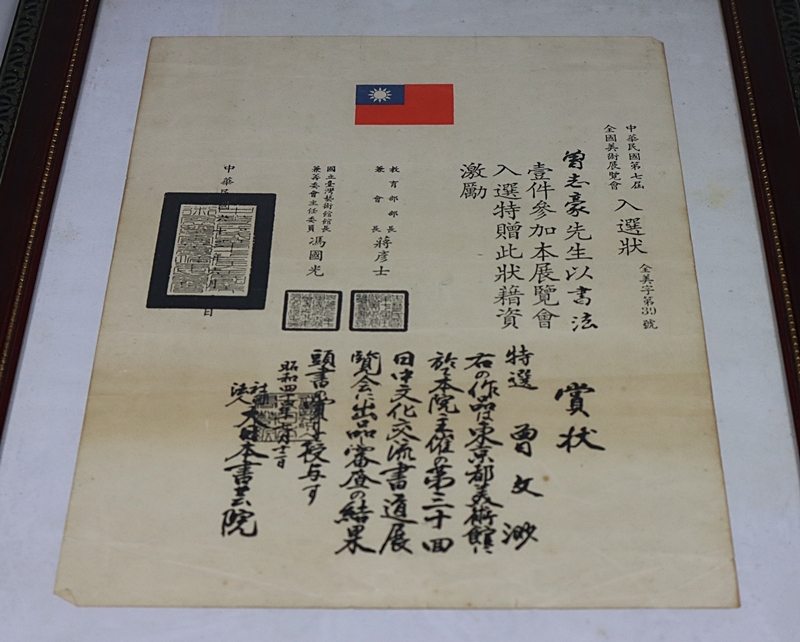 中華民國第七屆
全國美術展覽會
入選狀
全美字第39號
曾志豪先生以書法
壹件參加本展覽會
入選特贈此狀藉資
激勵
教育部部長
兼會長
蔣彥士
國立臺灣藝術館館長
兼籌委會主任委員
馮國光
中華民國
日
賞状
特選 曽文渺
右の作品は東京都美術館に
於て本院主催の第三十回
日中文化交流書道展
覧会に出品審査の結果
頭書の賞を授与す
昭和四十年七月十二日
社団
法人
大日本書芸院